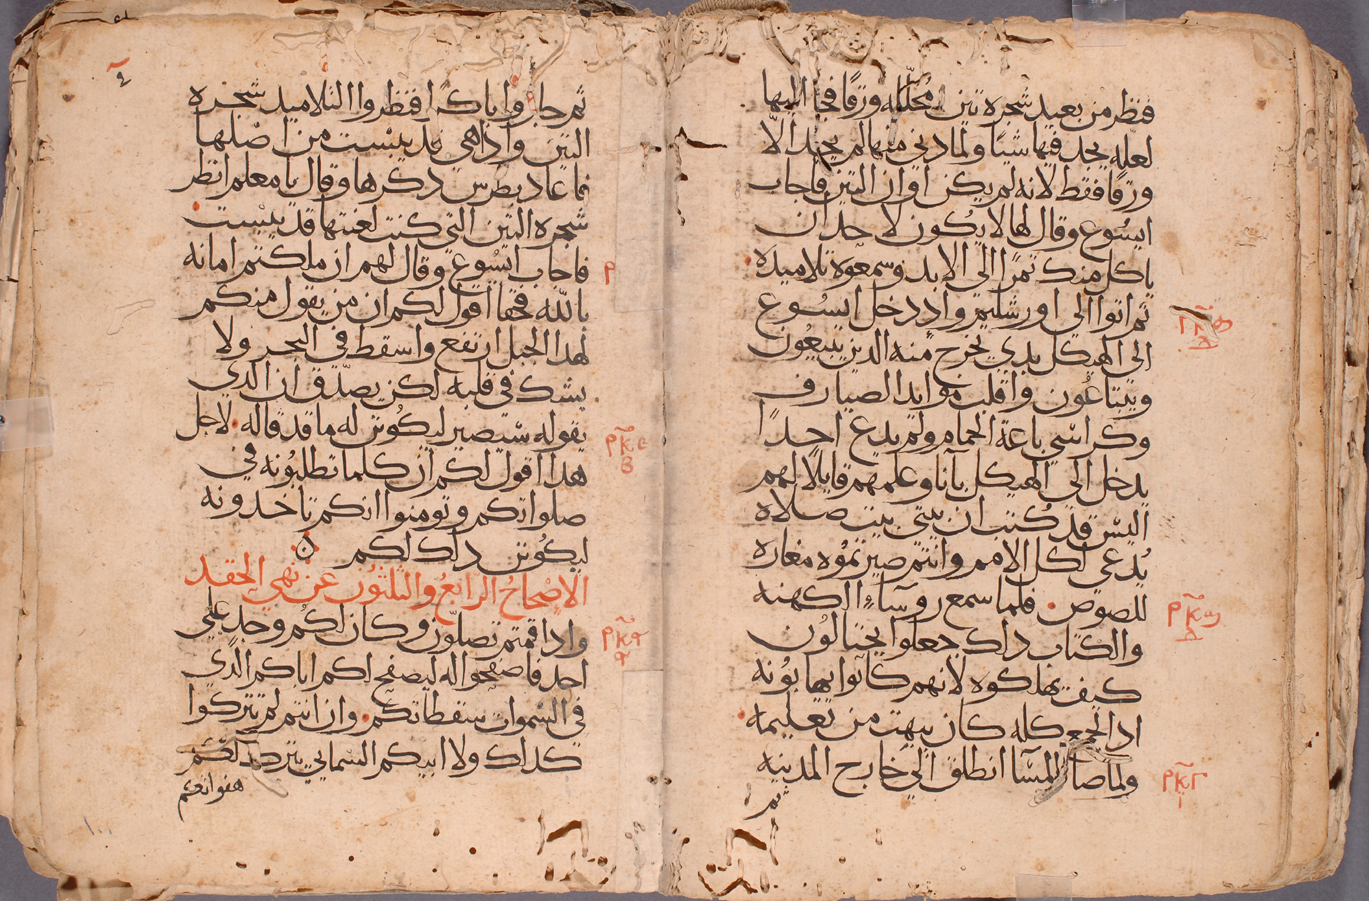 فنظر من بعيد شجرة تين محلله ورقا فجا اليها
لعله يجد فيها شيا ولما دنى منها لم يجد الا
ورقا فقط لانه لم يكن اوان التين فاجاب
ايسوع وقال لها لا يكون لاحد ان
ياكل منك تمرا الى الابد وسمعوه تلاميده
تم اتوا الى اورشليم واد دخل ايسوع
الى الهيكل بدي يخرج منه الدين يبيعون
ويبتاعون واقلب موايد الصيارف
وكراسي باعة الحمام ولم يدع احدا
يدخل الى الهيكل بانا وعلمهم قايلا لهم
اليس قد كتب ان بيتي بيت صلاه
يدعى لكل الامم وانتم صيرتموه مغاره
للصوص فلما سمع روساء الكهنه
والكتاب دلك جعلوا يحتالون
كيف يهلكوه لانهم كانوا يهابونه
اد الجمع كله كان يبهت من تعليمه
ولما صار المسا انطلق الى خارج المدينه
تم
تم جازوا باكرا فنظروا التلاميد شجره
التين واداهي قد يبست من اصلها
فما عاد بطرس دكرها وقال يا معلم انظر
شجره التين التي كنت لعنتها قد يبست
فاجاب ايسوع وقال لهم ان ملكتم امانه
بالله فحقا اقول لكم ان من يقول منكم
لهدا الجبل ارتفع واسقط في البحر ولا
يشك في قلبه لكن يصدق ان الدي
يقوله سيصير ليكونن له ما قد قاله لاجل
هدا اقول لكم ان كلما تطلبونه في
صلواتكم وتومنوا انكم تاخدونه
ليكونن دلك لكم
الاصحاح الرابع والثلثون عن نهي الحقد
وادا قمتم تصلون وكان لكم وجد على
احد فاصفحوا له ليصفح لكم اباكم الدي
في السموات سقطاتكم وان انتم لم تتركوا
كداك ولا ابيكم السمايي يترك لكم
هفواتكم